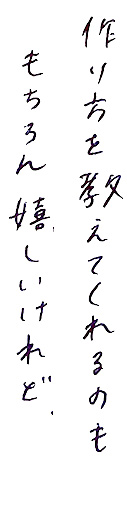 作り方を教えてくれるのも
もちろん嬉しいけれど、